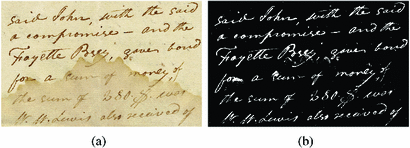 said John, with the said
a compromise - and the
Fayette Posey, gave bond
for a sum of money, of
the sum of $80. was
W. H. Lewis also received of
said John, with the said
a compromise - and the
Fayette Posey, gave bond
for a sum of money, of
the sum of $80. was
W. H. Lewis also received of
(a)
(b)